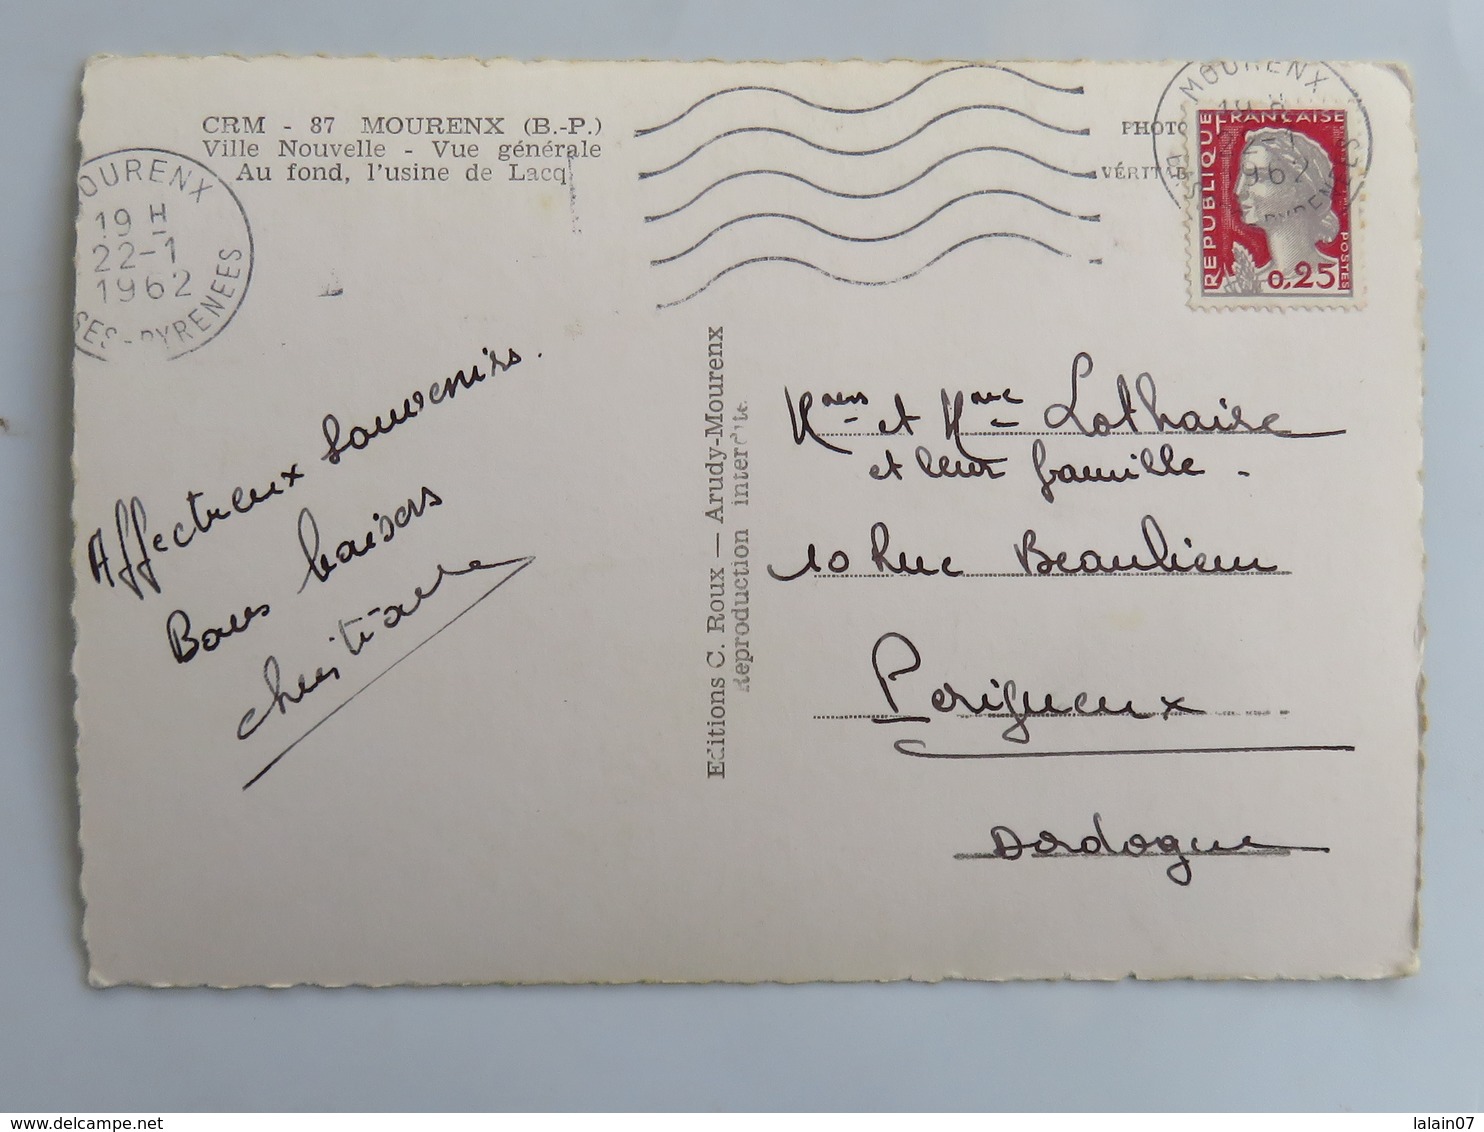 CRM - 87 MOURENX (B.-P.)
Ville Nouvelle - Vue générale
Au fond, l'usine de Lacq
OURENX
19 H
22-1
1962
SES-PYRENEES
MOURENX
19 H
1962
PYRENEES
PHOTO
VÉRITAB
REPUBLIQUE
FRANÇAISE
POSTES
0,25
Affectueux souvenirs.
Bons baisers
Christiane
Editions C. Roux — Arudy-Mourenx
Reproduction interdite
et Mme Lothaire
et leur famille -
10 Rue Beaulieu
Perigueux
Dordogne
delcampe.net
lalain07